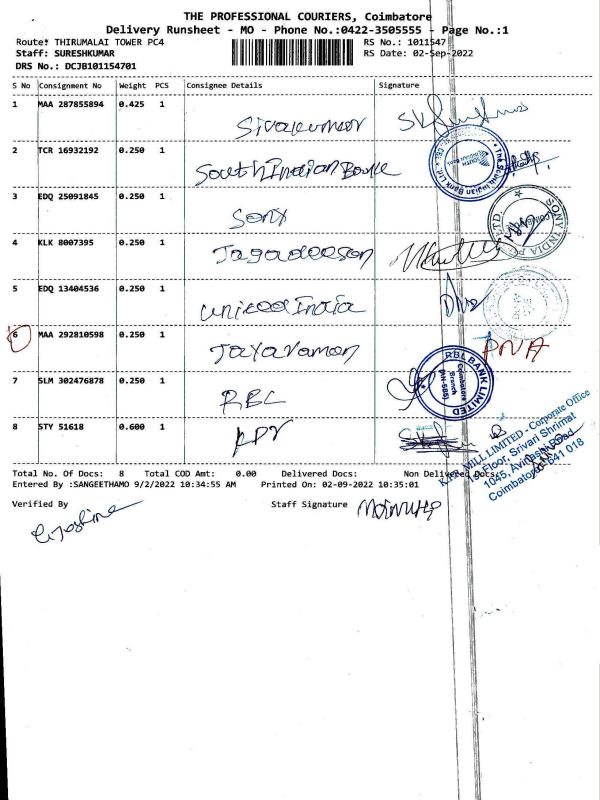 THE PROFESSIONAL COURIERS, Coimbatore
Delivery Runsheet - MO - Phone No.:0422-3505555 - Page No.:1
Route: THIRUMALAI TOWER PC4 RS No.: 1011547
Staff: SURESHKUMAR RS Date: 02-Sep-2022
DRS No.: DCJB101154701
S No Consignment No Weight PCS Consignee Details Signature
1 MAA 287855894 0.425 1 Sivakumar
2 TCR 16932192 0.250 1 South Indian Bank
The South Indian Bank Ltd.
3 EDQ 25091845 0.250 1 Sony
SONY INDIA PVT. LTD.
4 KLK 8007395 0.250 1 Jagadeesan
5 EDQ 13404536 0.250 1 United India
6 MAA 292810598 0.250 1 Jayaraman PNA
7 SLM 302476878 0.250 1 RBL
RBL BANK LIMITED
Coimbatore
Branch
8 STY 51618 0.600 1 KPR
MILL LIMITED - Corporate Office
1st Floor, Srivari Shrimat
1045, Avinashi Road
Coimbatore - 641 018
Total No. Of Docs: 8 Total COD Amt: 0.00 Delivered Docs: Non Delivered Docs:
Entered By :SANGEETHAMO 9/2/2022 10:34:55 AM Printed On: 02-09-2022 10:35:01
Verified By Staff Signature